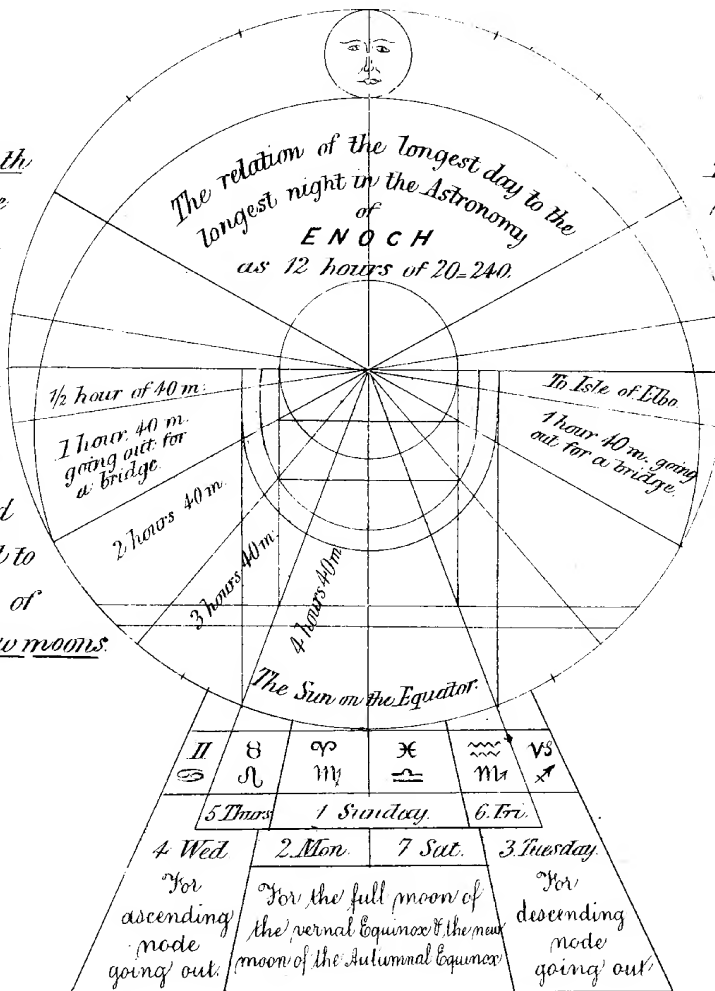 The relation of the longest day to the
longest night in the Astronomy
of
ENOCH
as 12 hours of 20=240.
th
e
d
l to
of
w moons.
1/2 hour of 40 m.
1 hour. 40 m.
going out for
a bridge.
2 hours 40 m.
3 hours 40 m.
4 hours 40 m
To Isle of Elba.
1 hour 40 m. going
out for a bridge.
The Sun on the Equator.
♊ ♉ ♈ ♓ ♒ ♑
♋ ♌ ♍ ♎ ♏ ♐
5 Thurs 1 Sunday. 6. Fri.
4 Wed 2. Mon. 7 Sat. 3. Tuesday.
For
ascending
node
going out.
For the full moon of
the vernal Equinox & the new
moon of the Autumnal Equinox
For
descending
node
going out.